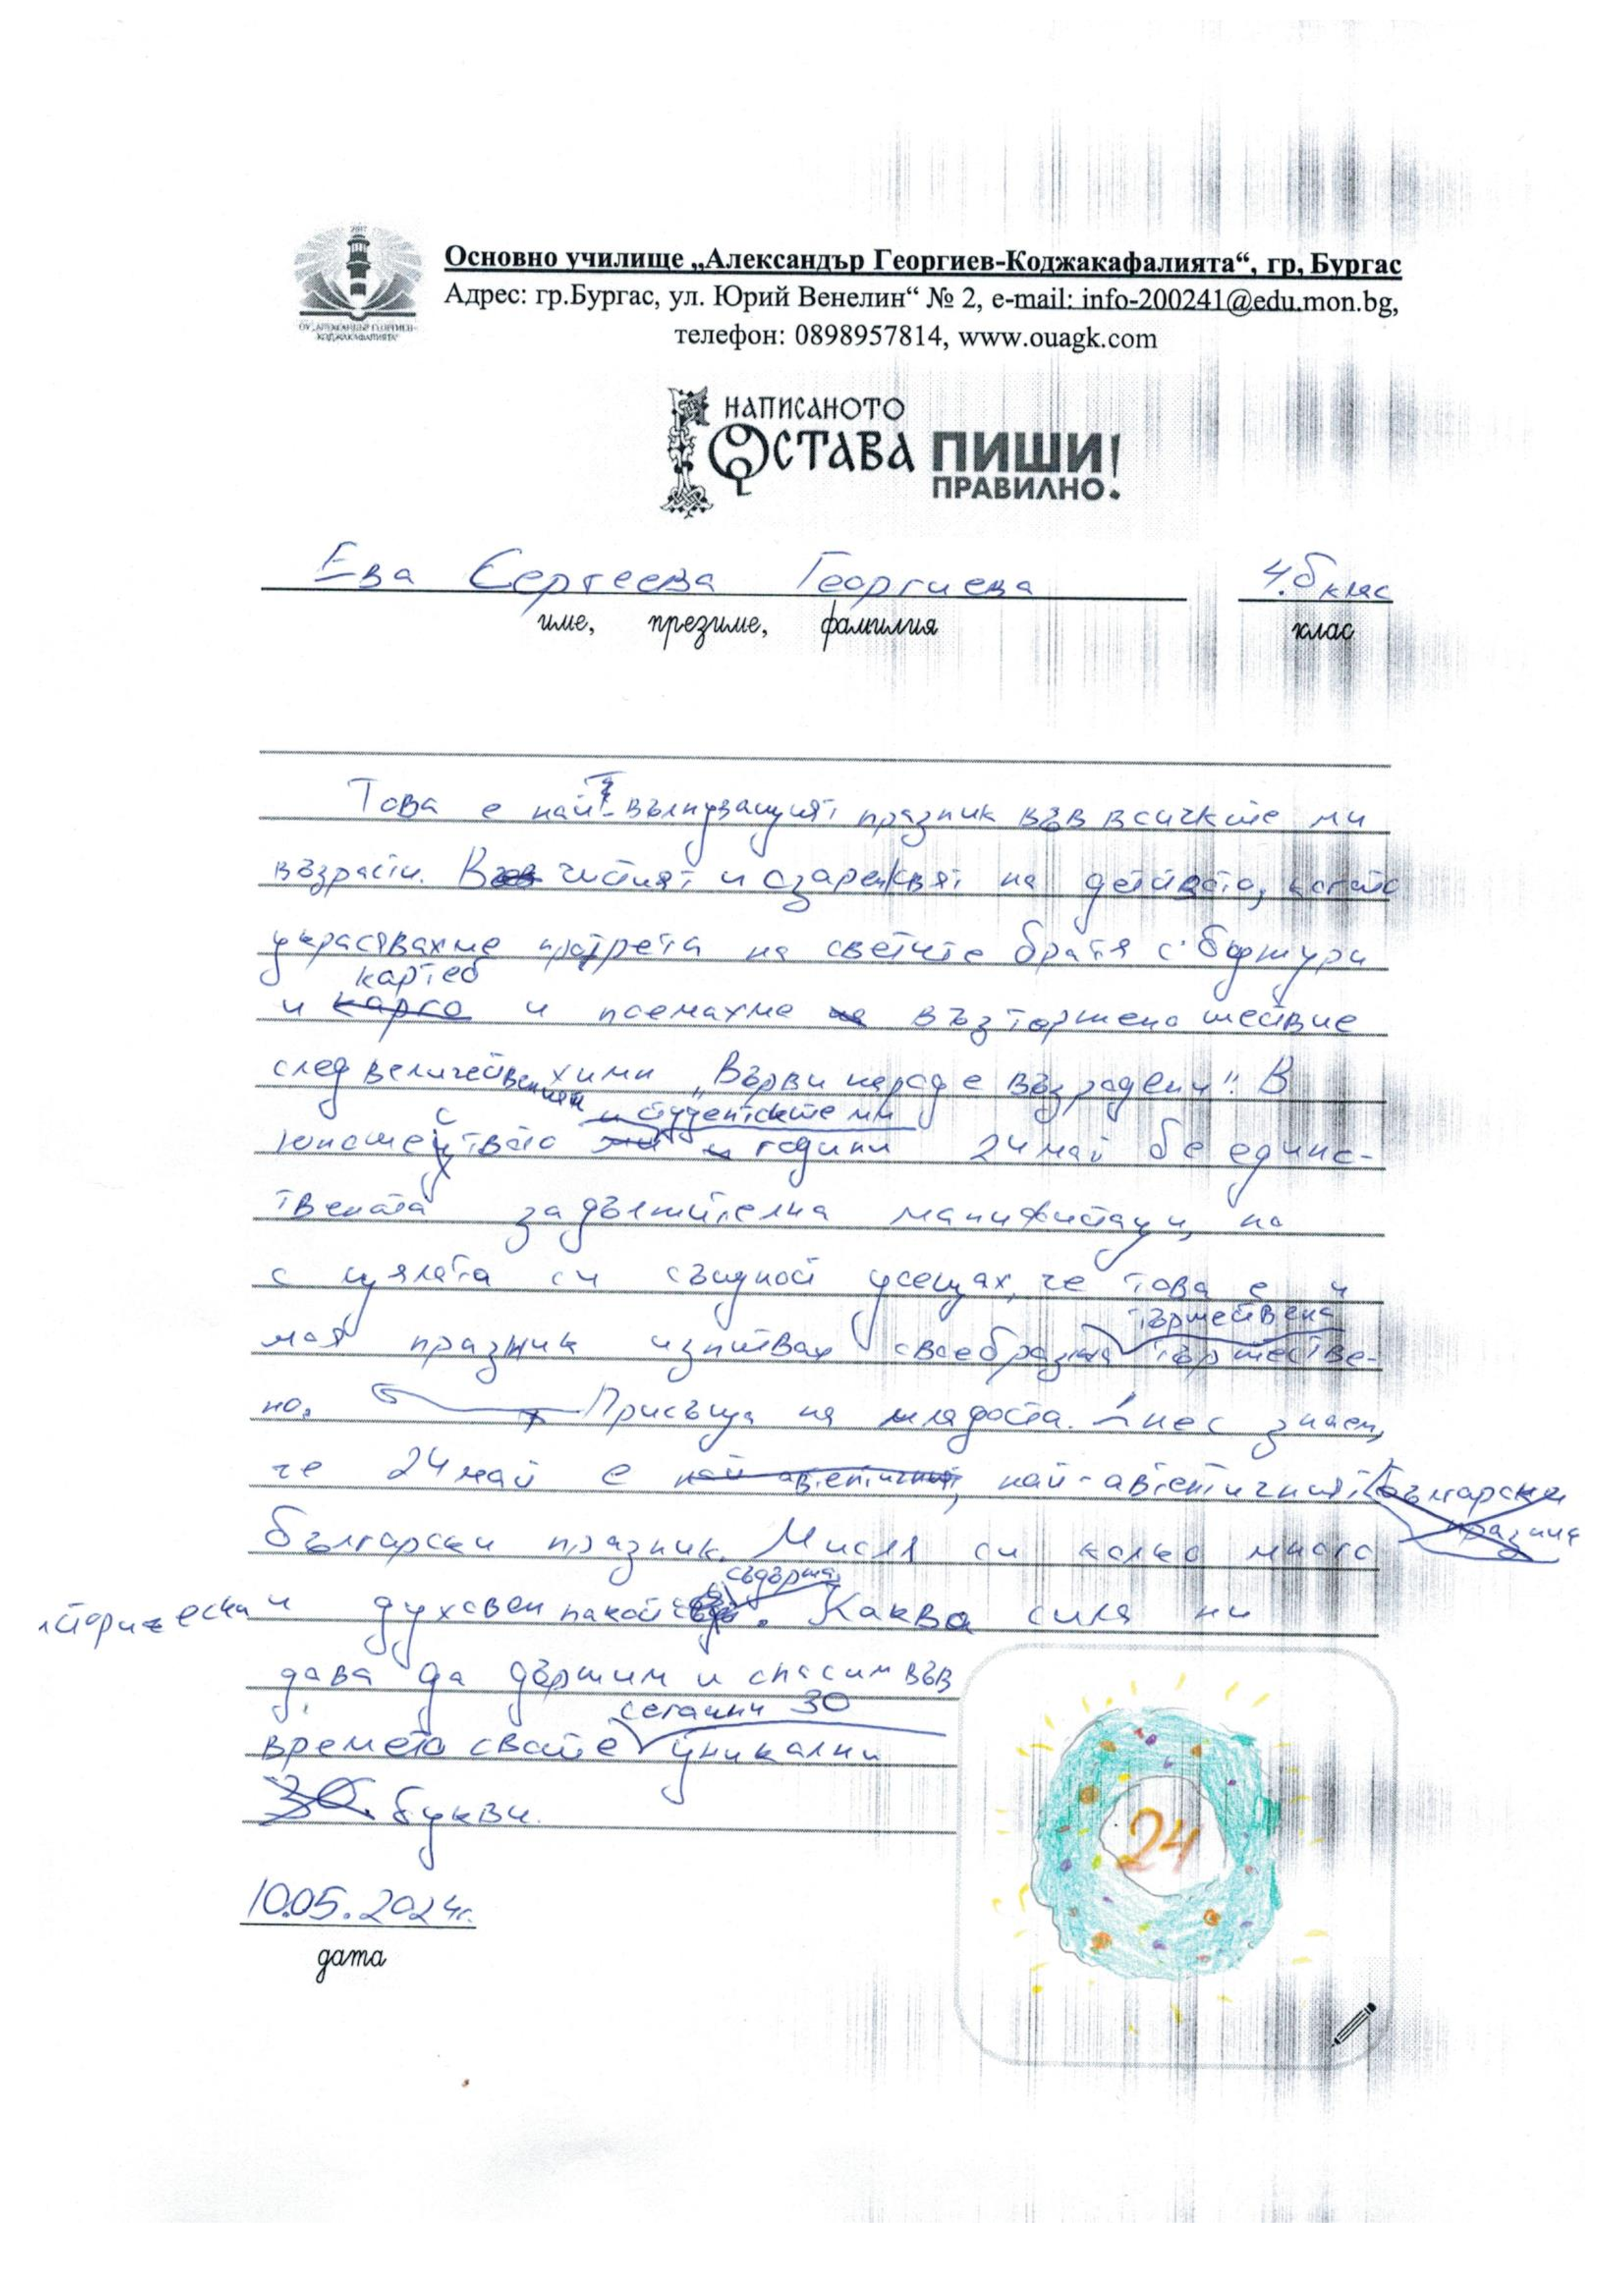 ОУ „АЛЕКСАНДЪР ГЕОРГИЕВ-
КОДЖАКАФАЛИЯТА“
Основно училище „Александър Георгиев-Коджакафалията“, гр. Бургас
Адрес: гр.Бургас, ул. Юрий Венелин“ № 2, e-mail: info-200241@edu.mon.bg,
телефон: 0898957814, www.ouagk.com
НАПИСАНОТО
ОСТАВА ПИШИ
ПРАВИЛНО!
Ева Сергеева Георгиева 4.б клас
име, презиме, фамилия клас
Това е най-вълнуващият празник във всичките ми
възрасти. В чистият и на детството, когато
украсявахме протрета на светите братя с божури
картеб
и и поемахме възторжено шествие
след величественият химн „Върви народе възродени“! В
и студентските ми
юношеството години 24 май бе единс-
твената задължителна манифистаци, но
с цялата си същност усещах, че това е и
тържествена
моя празник изпитвах своебразна тържестве-
но. Присъща на младоста. Днес знаем,
че 24 май е най-автентичният български
празник
български празник. Мисля си колко много
съдържа
исторически и духовен покой. Каква сила ни
дава да държим и спасим във
сегашни 30
времето своите уникални
30 букви.
24
10.05.2024г.
дата